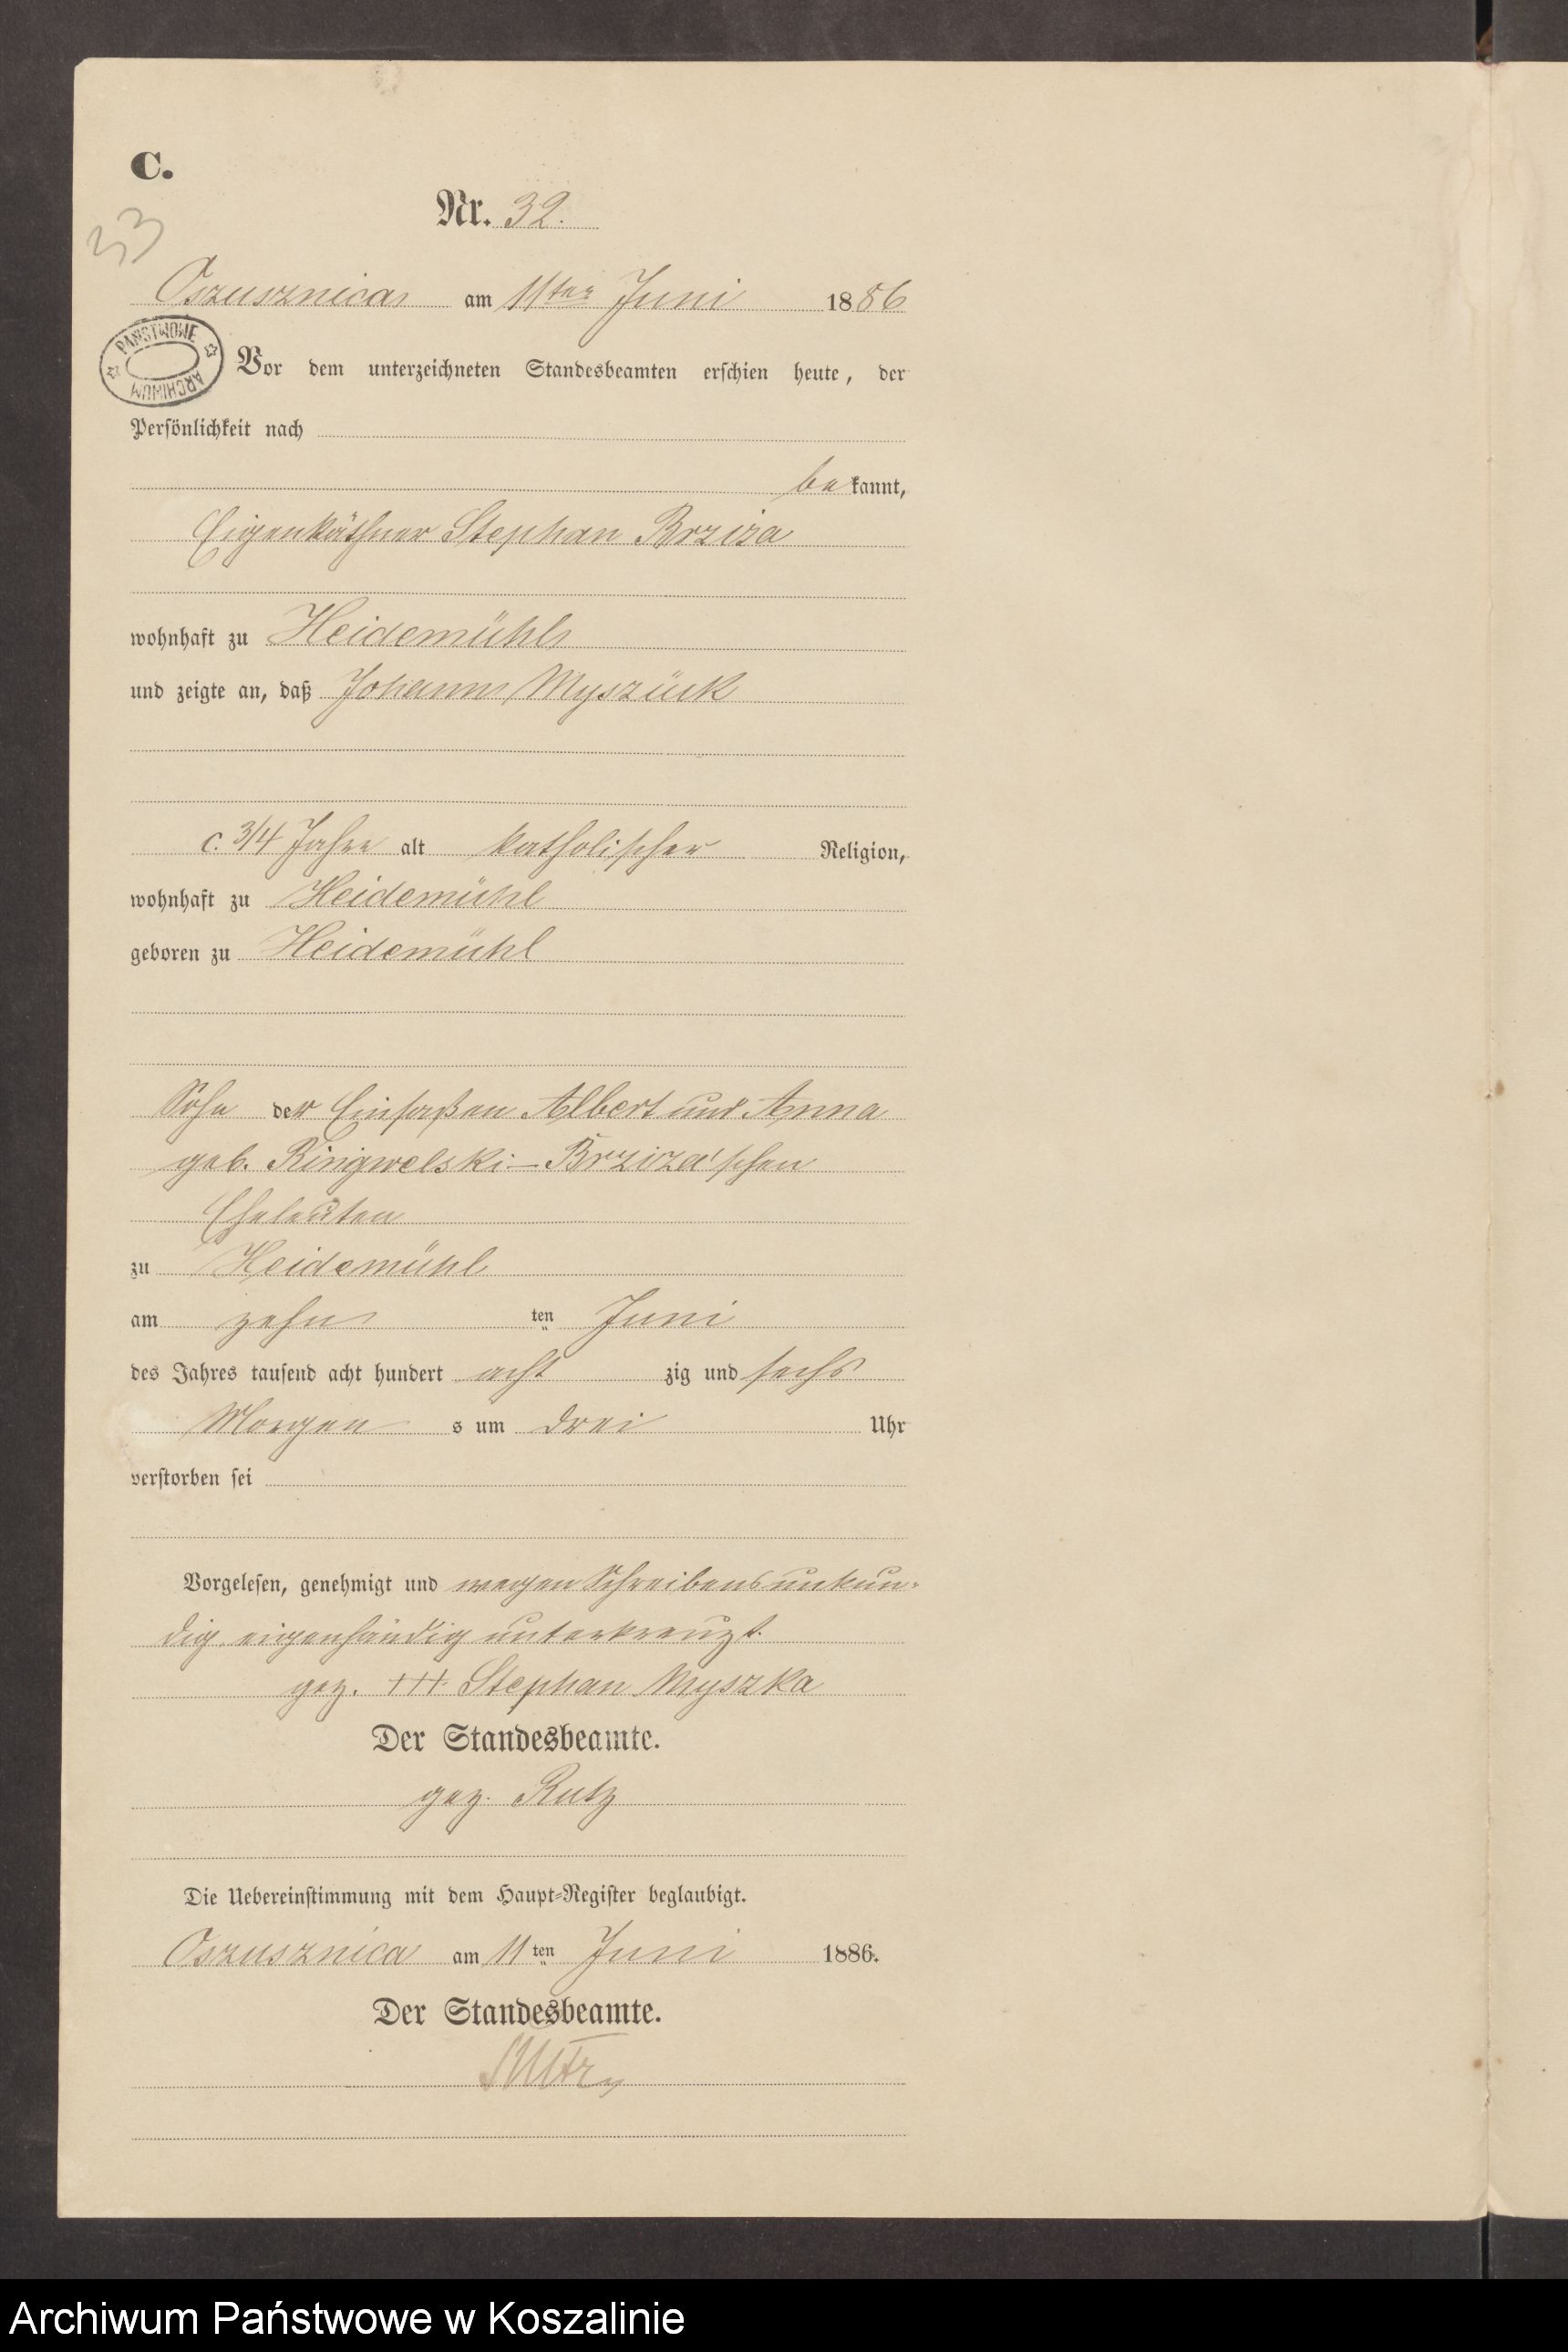 C.
Nr. 32.
33
Oszusznica am 11ten Juni 1886
PAŃSTWOWE ARCHIWUM
Vor dem unterzeichneten Standesbeamten erschien heute, der
Persönlichkeit nach
bekannt,
Eigenkäthner Stephan Brziza
wohnhaft zu Heidemühl
und zeigte an, daß Johann Myszück
c. 3/4 Jahre alt katholischer Religion,
wohnhaft zu Heidemühl
geboren zu Heidemühl
Sohn der Einsaßen Albert und Anna
geb. Ringwelski-Brziza'schen
Eheleuten
zu Heidemühl
am zehn ten Juni
des Jahres tausend acht hundert acht zig und sechs
Morgen s um drei Uhr
verstorben sei
Vorgelesen, genehmigt und wegen Schreibensunkun-
dig eigenhändig unterkreuzt.
gez. +++ Stephan Myszka
Der Standesbeamte.
gez. Rutz
Die Uebereinstimmung mit dem Haupt-Register beglaubigt.
Oszusznica am 11ten Juni 1886.
Der Standesbeamte.
Rutz
Archiwum Państwowe w Koszalinie